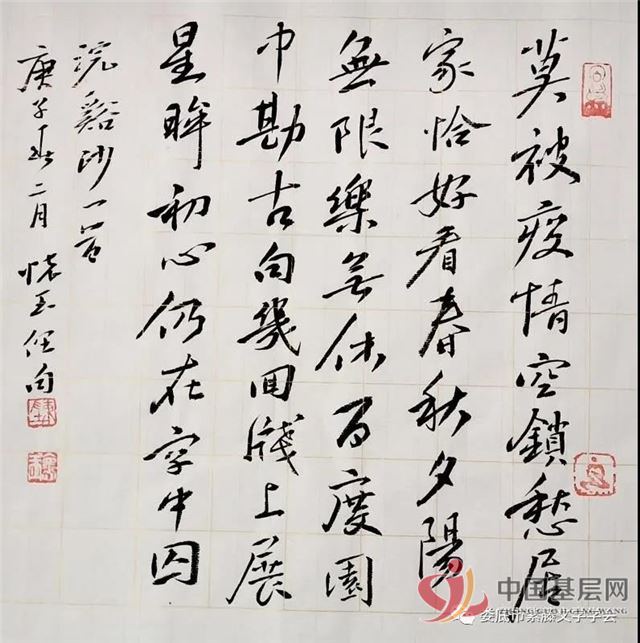 莫被疫情空鎖愁居
家恰好看春秋夕陽
無限樂無休百度園
中勘古句幾回牋上展
星眸初心仍在字中囚
浣谿沙一首
庚子春二月
中国基层网
ZHONG GUO JI CENG WANG
娄底市紫藤文学学会